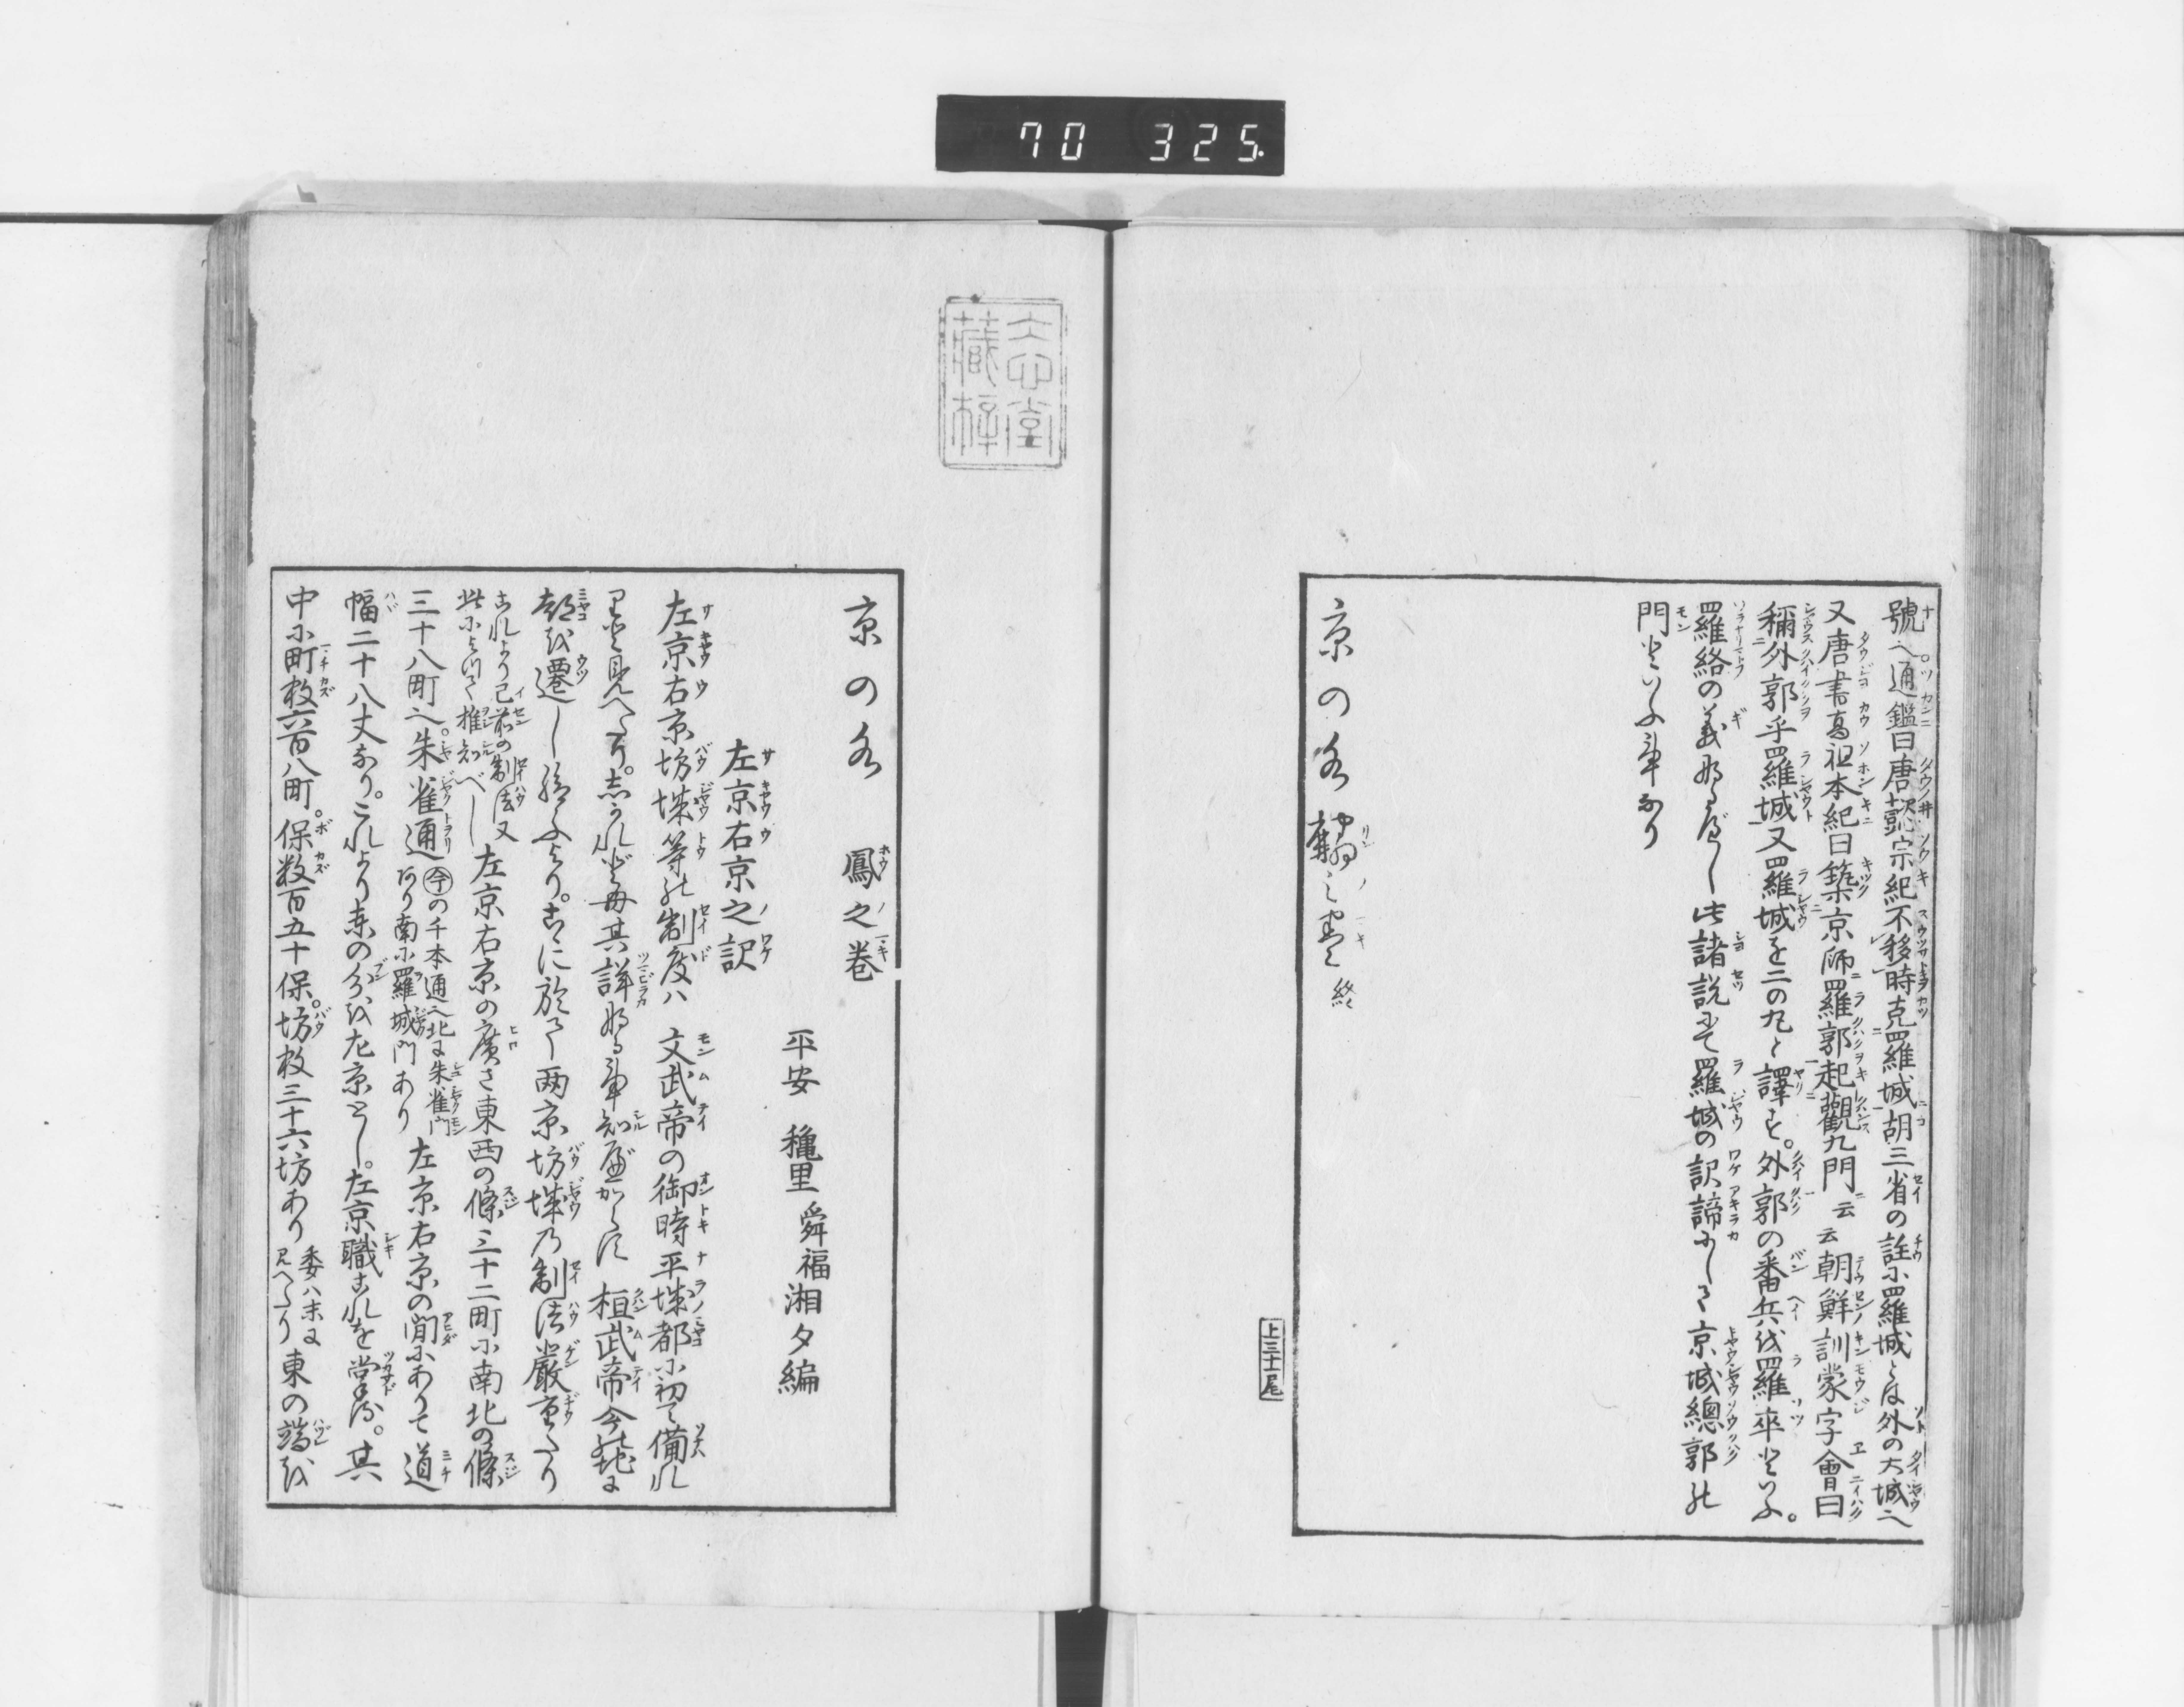 70 325
號也。通鑑曰唐懿宗紀不移時克羅城胡三省の註に羅城とは外の大城也
又唐書高祖本紀曰築京師羅郭起觀九門云云朝鮮訓蒙字會曰
稱外郭乎羅城又羅城を二の丸と譯す。外郭の番兵を羅卒といふ。
羅絡の義なるべし此諸説にて羅城の訳諦にして京城總郭の
門といふ事なり
京の水 之巻終
上三十尾
京の水 鳳之巻
平安 龝里舜福湘夕編
左京右京之訳
左京右京坊城等の制度ハ 文武帝の御時平城都に初て備れ
りと見へたり。志かれ共其詳なる事知べからず 桓武帝今の地に
都を遷し給ふより。こゝに於て両京坊城乃制法嚴重たり
これより已前の制法又
此によりて推知べし
左京右京の廣さ東西の條三十二町に南北の條
三十八町也。朱雀通
㋿今の千本通也北に朱雀門
あり南に羅城門あり
左京右京の間にありて道
幅二十八丈なり。これより東の分を左京とし。左京職これを掌る。其
中に町数六百八町。保数百五十保。坊数三十六坊あり
委ハ末に
見へたり
東の端を